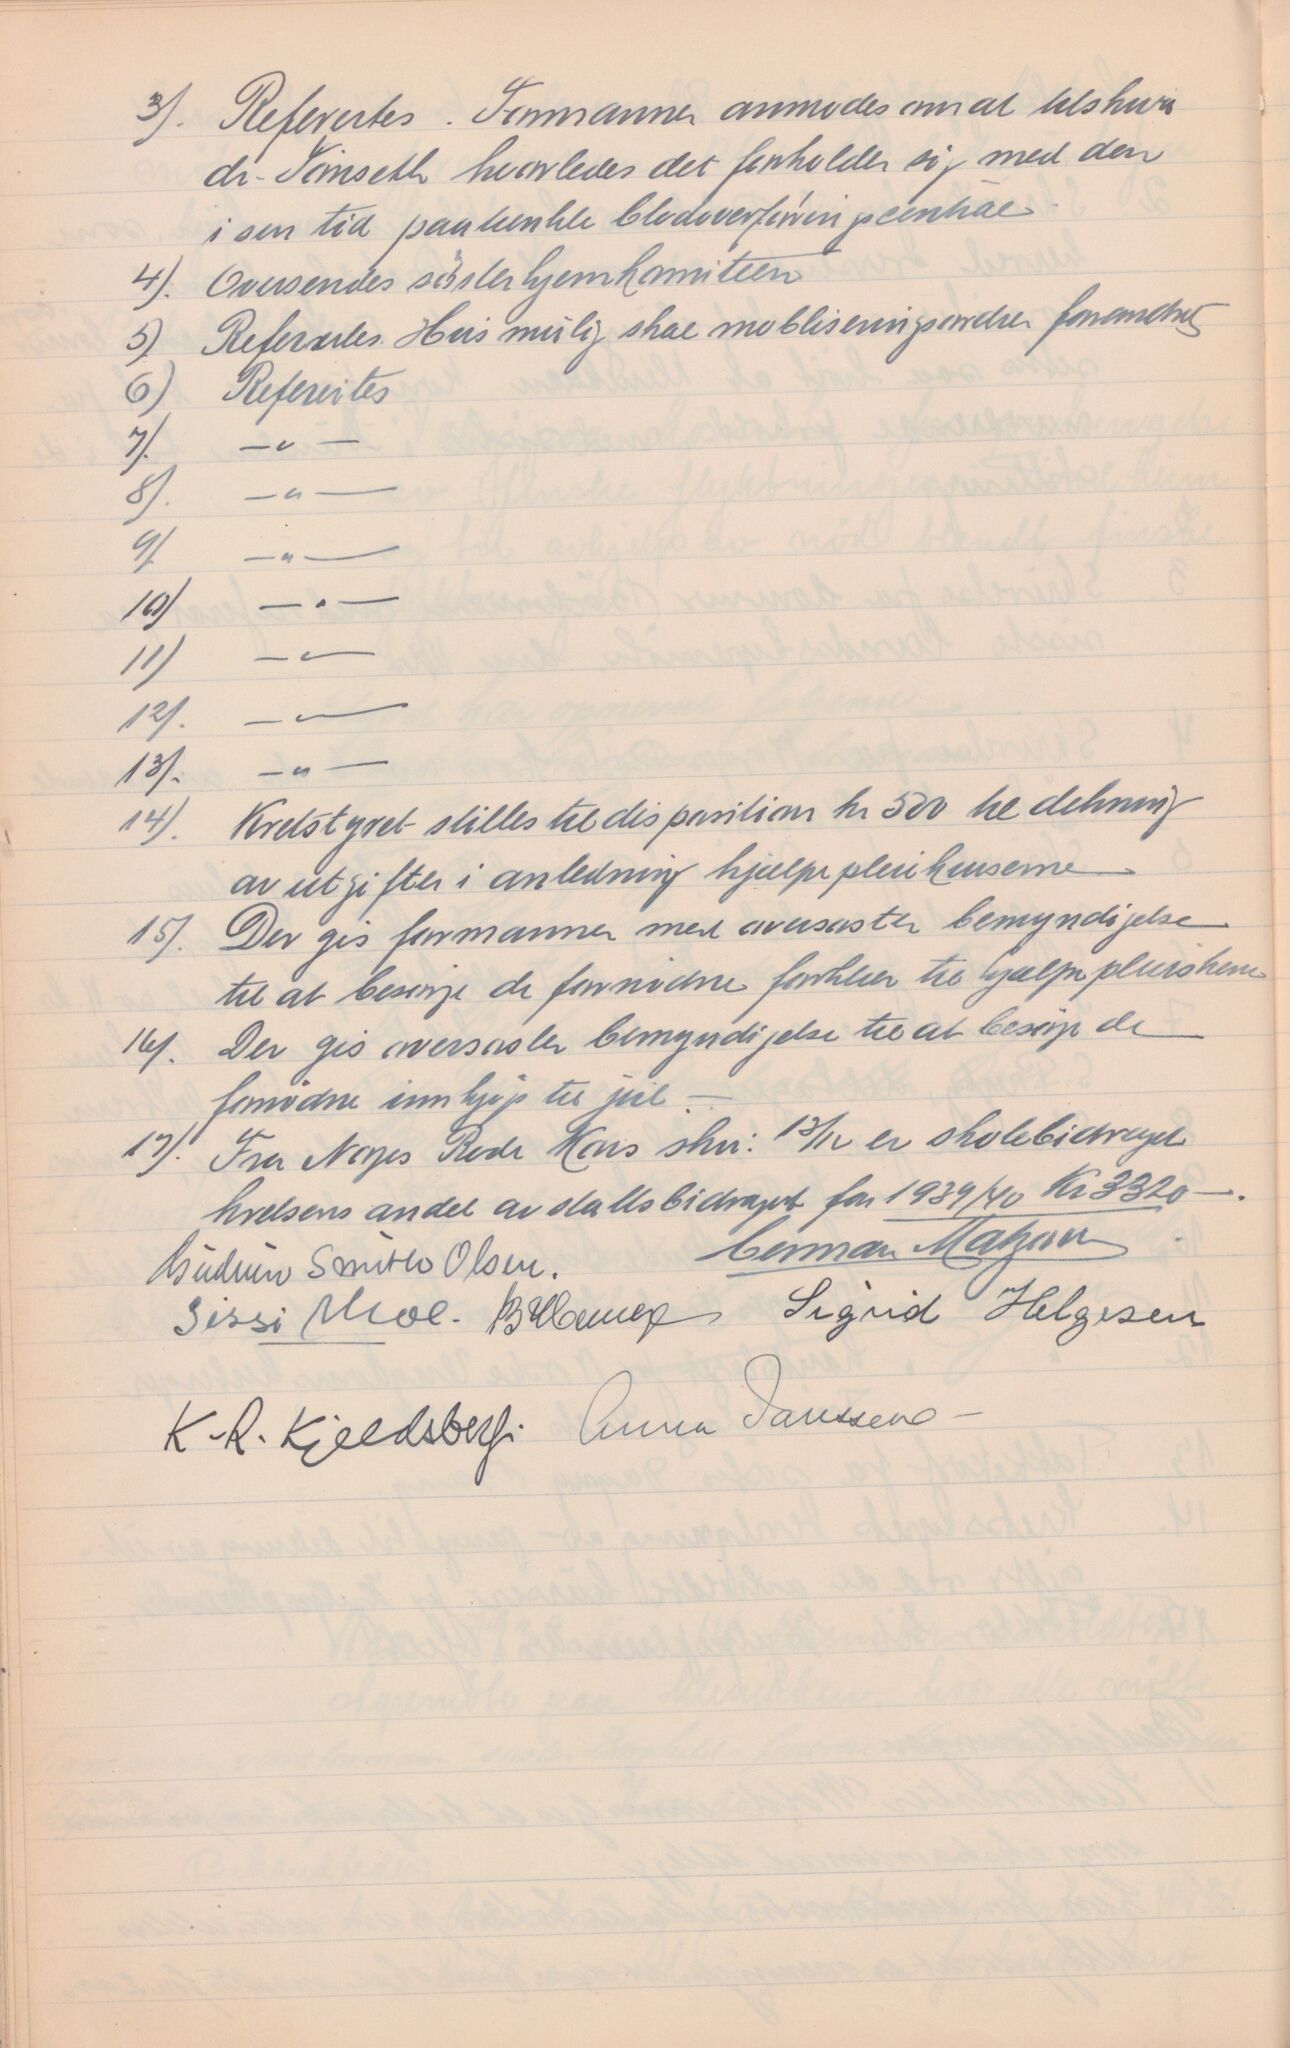 3). Refereres. Formannen anmodes om at tilskrive
dr. Tønseth hvorledes det forholder sig med den
i sen tid paatenkte blodoverføringscentral
4). Oversendes søsterhjemkomiteen
5) Refereres. Hvis mulig skal mobliseringsordren forandres
6) Refereres
7). — " —
8). — " —
9/ — " —
10) — " —
11) — " —
12). — " —
13). — " —
14). Kretsstyret stilles til disposition kr 500 til dekning
av utgifter i anledning hjælpepleiekursene
15). Der gis formannen med oversøster bemyndigelse
til at besørge de fornødne forklær til hjælpepleierskene
16). Der gis oversøster bemyndigelse til at besørge de
fornødne innkjøp til jul —
17). Fra Norges Røde Kors skr: 13/12 er skolebidraget
kretsens andel av statsbidraget for 1939/40 Kr 3320 —.
Gudrun Smith Olsen. Herman
Sissi Moe. Sigrid Helgesen
K. R. Kjeldsberg. Anna Janssen —